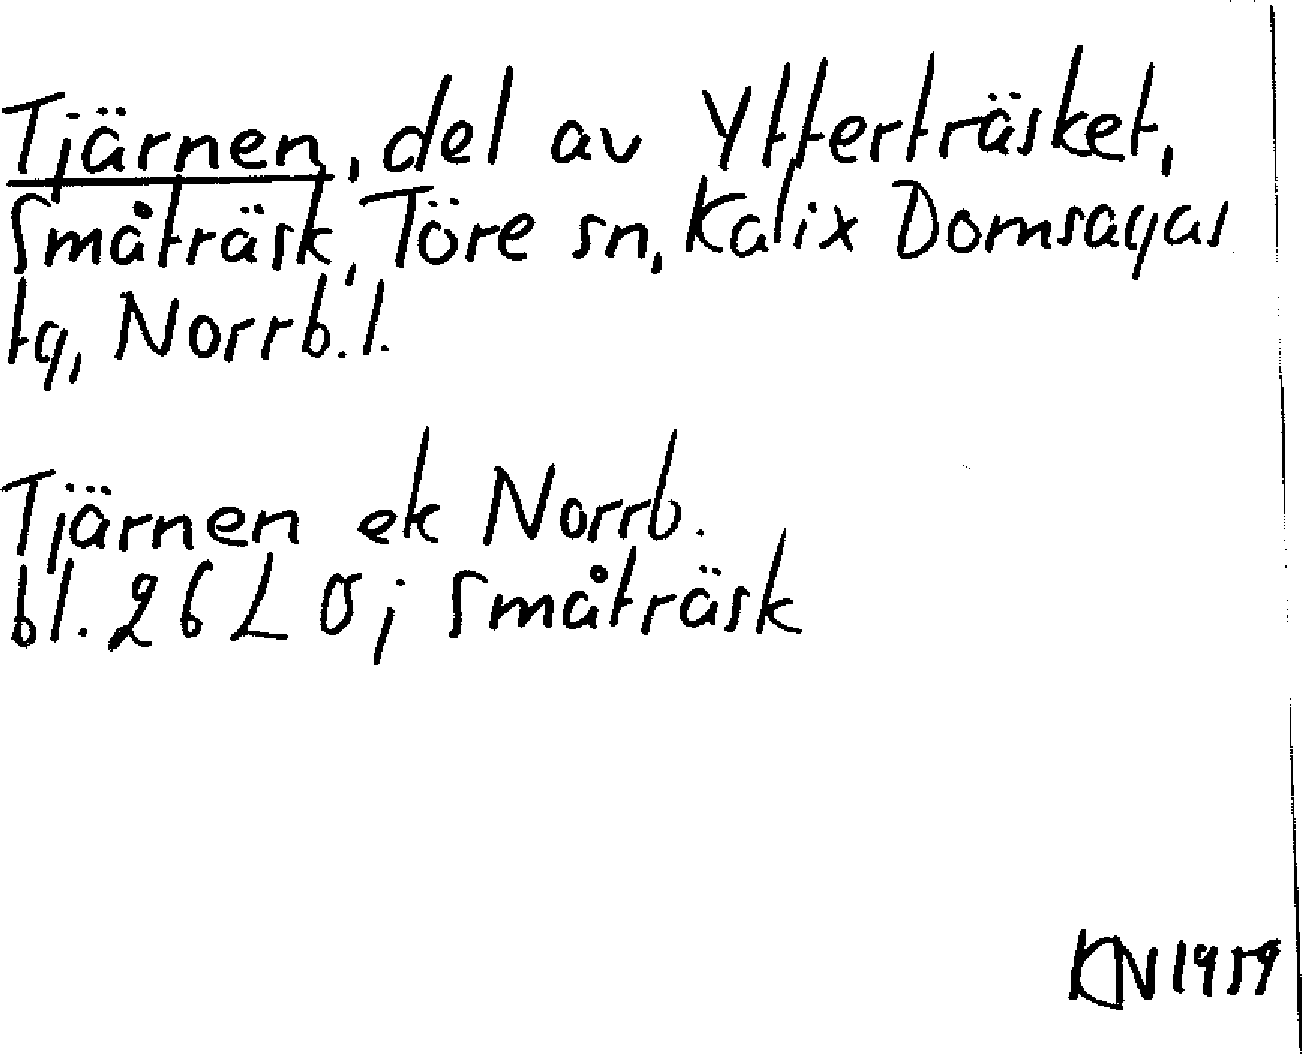 Tjärnen, del av Ytterträsket,
Småträsk, Töre sn, Kalix Domsagas
tg, Norrb. l.
Tjärnen ek Norrb.
bl. 26 L Ö; Småträsk
KN 1959